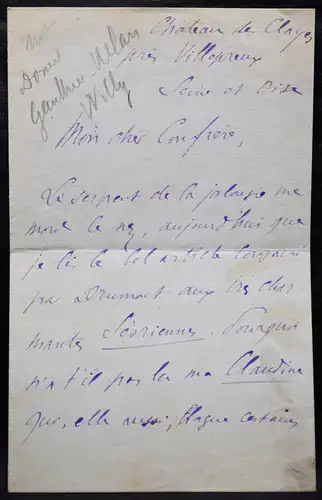 Château de Clayes
près Villepreux
Seine et Oise
Mon cher Confrère,
Le serpent de la jalousie me
mord le nez, aujourd'hui que
je lis le bel article consacré
par Drumont aux très char
mantes Sévriennes. Pourquoi
n'a t'il pas lu ma Claudine
qui, elle aussi, blague certaines
Donis
Gauthier-Villars
Willy